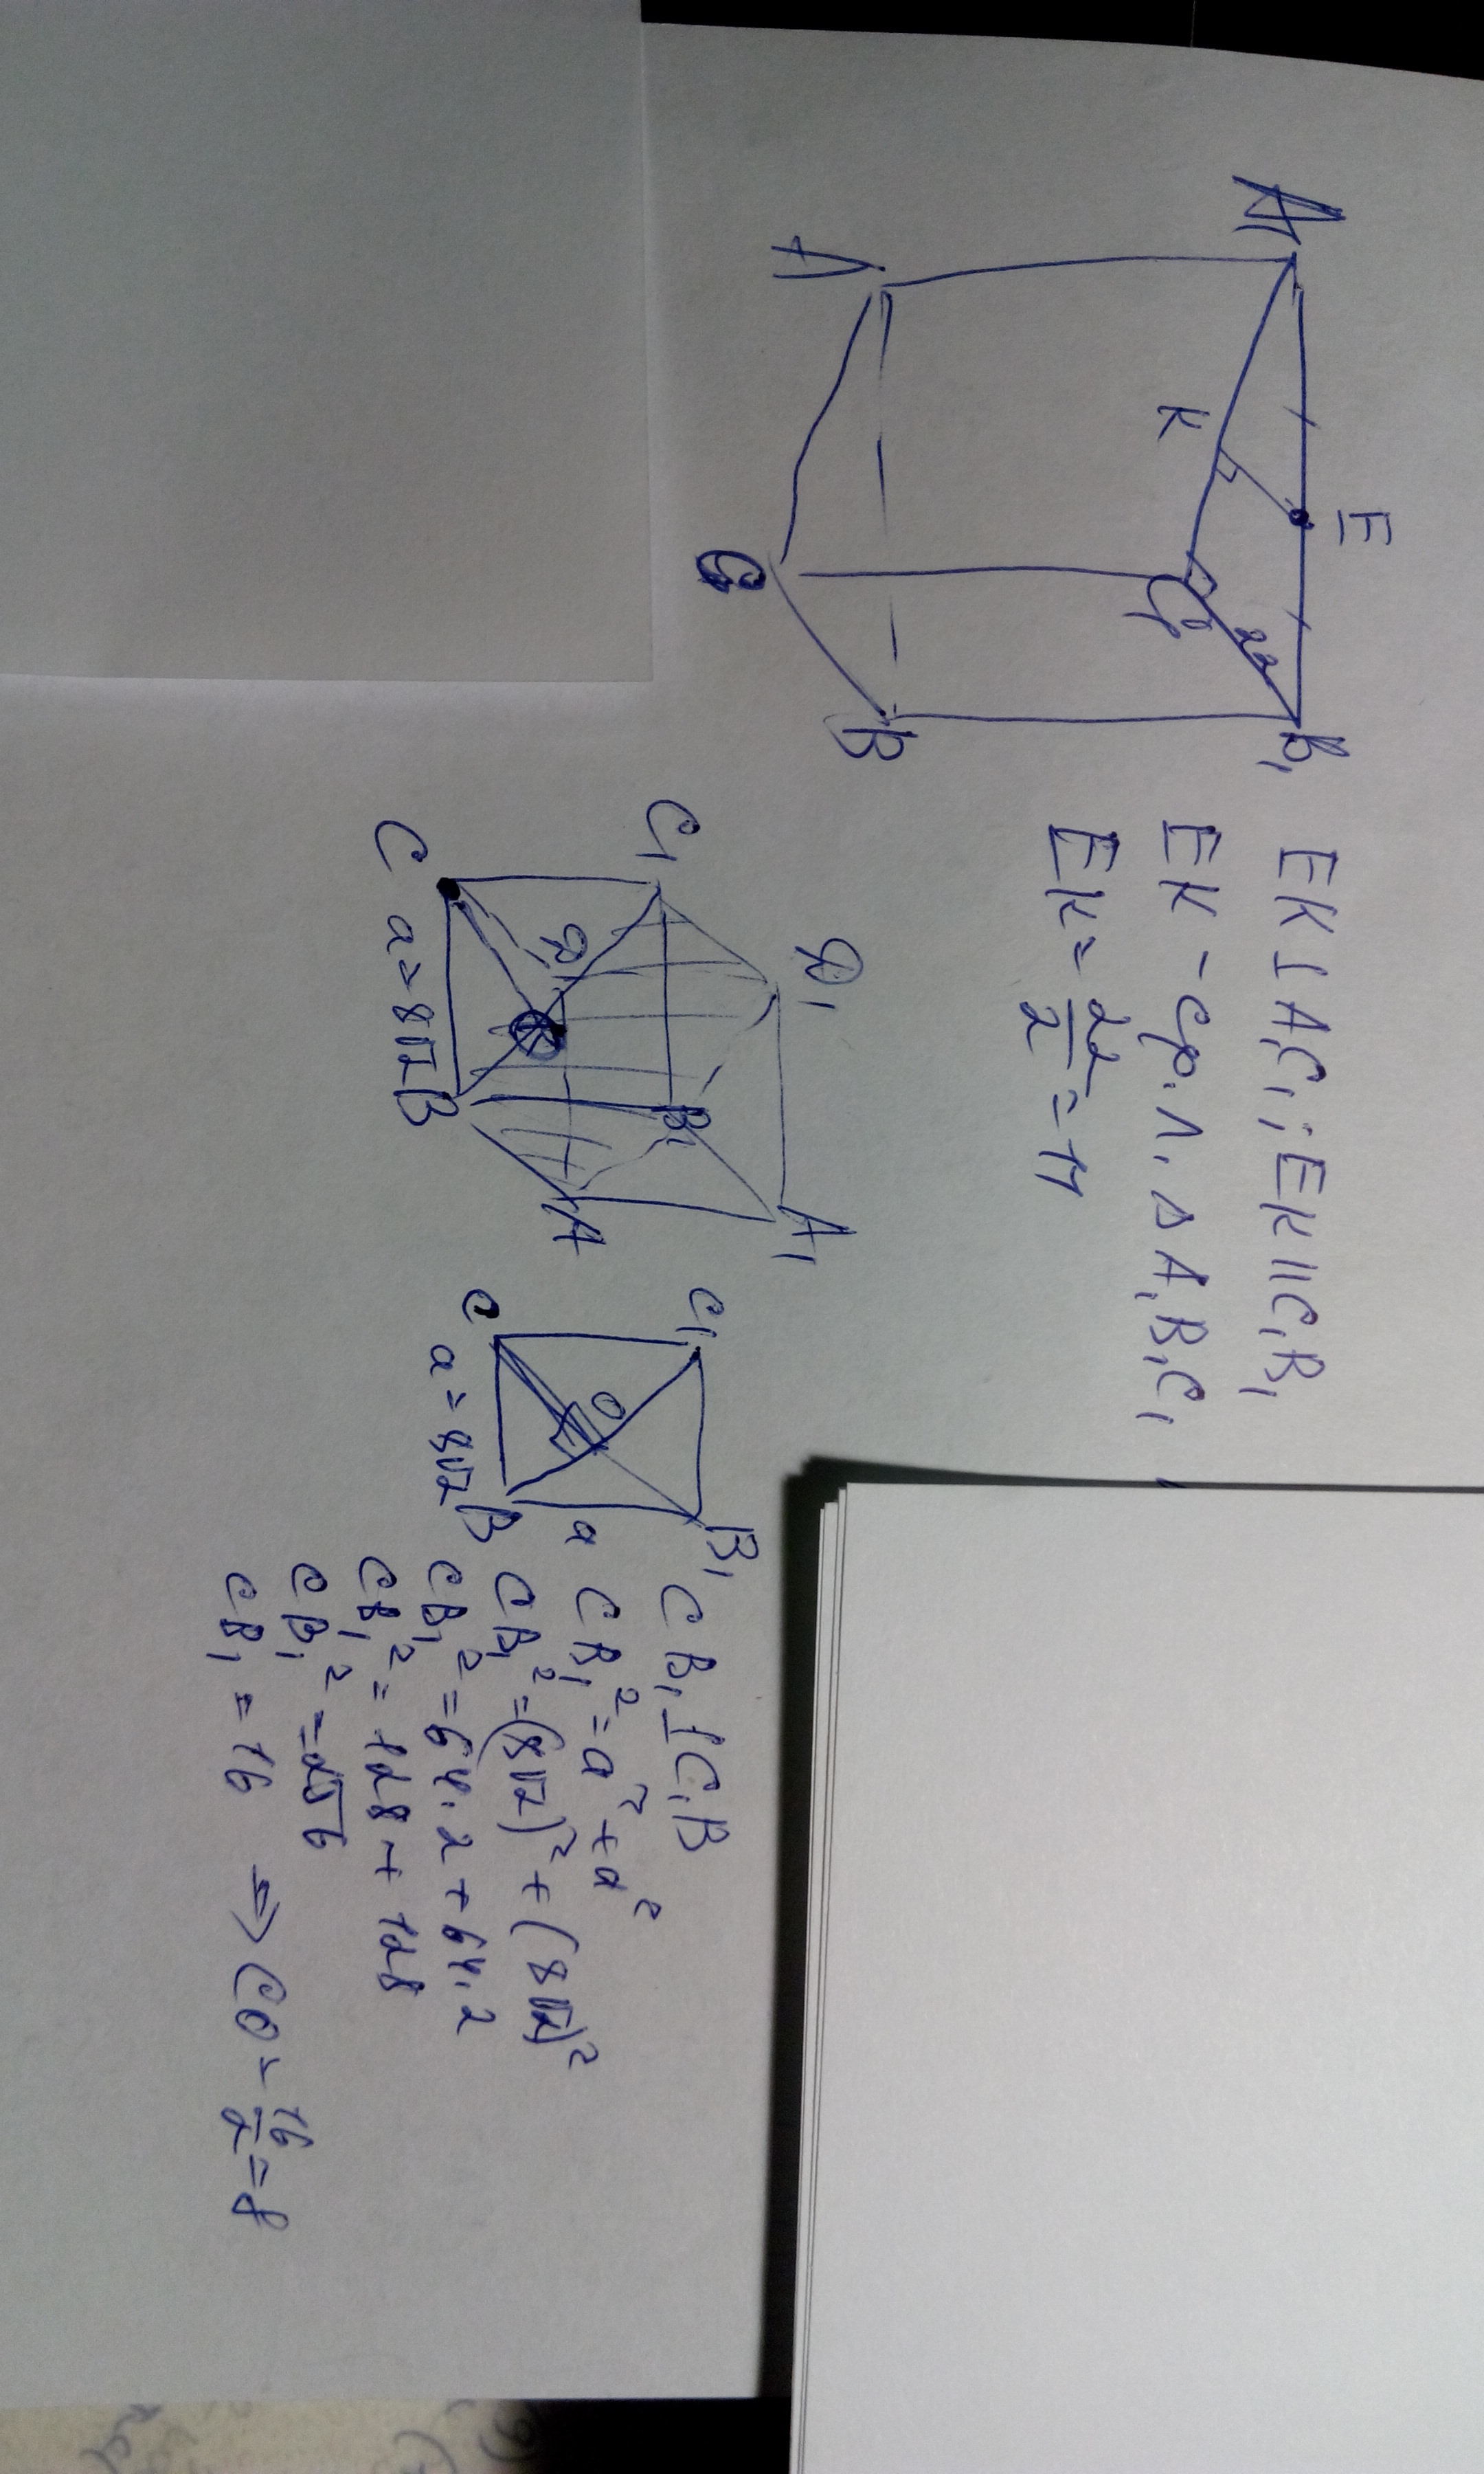 A₁
E
B₁
K
C₁
22
A
C
B
EK ⊥ A₁C₁; EK || C₁B₁
EK - ср. л. Δ A₁B₁C₁
EK = 22/2 = 11
D₁
A₁
C₁
B₁
A
C
B
a = 8√2
C₁
B₁
O
a
C
B
a = 8√2
CB₁ ⊥ C₁B
CB₁² = a² + a²
CB₁² = (8√2)² + (8√2)²
CB₁² = 64·2 + 64·2
CB₁² = 128 + 128
CB₁² = 256
CB₁ = 16 ⇒ CO = 16/2 = 8